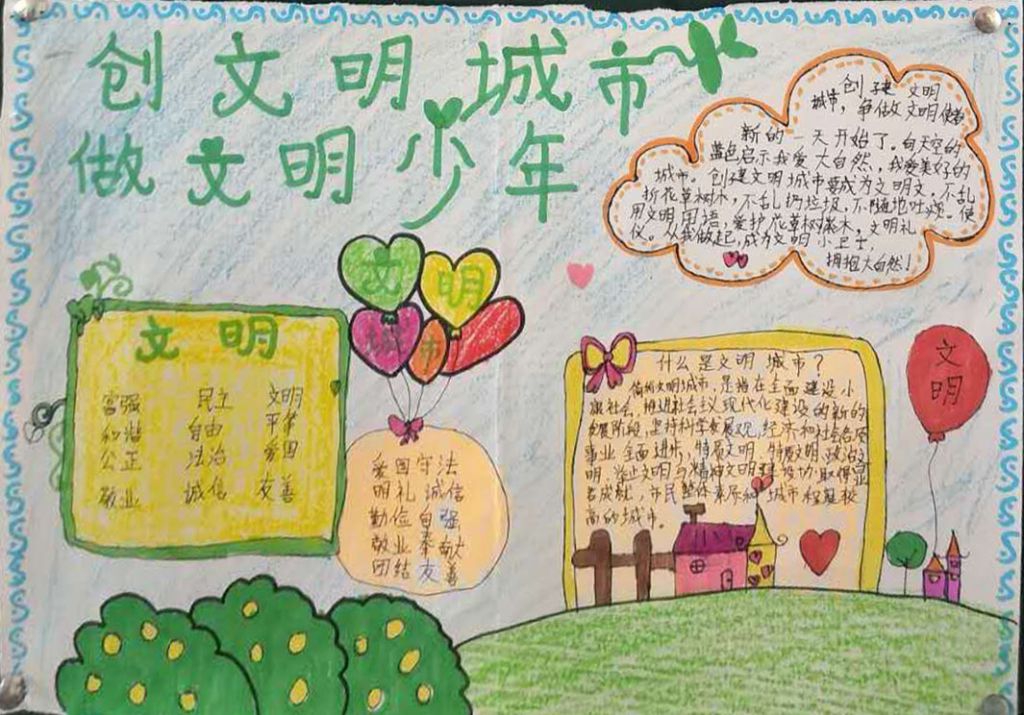 创文明城市
做文明少年
创建文明
城市，争做文明使者
新的一天开始了。向天空的
蓝色启示我爱大自然，我爱美好的
城市。创建文明城市要成为文明文，不乱
折花草树木，不乱扔垃圾，不随地吐痰。使
用文明用语，爱护花草树木，文明礼
仪。从我做起，成为文明小卫士，
拥抱大自然！
文明
城市
文明
富强 民主 文明
和谐 自由 平等
公正 法治 爱国
敬业 诚信 友善
爱国守法
明礼诚信
勤俭自强
敬业奉献
团结友善
什么是文明城市？
文明城市，是指在全面建设小
康社会，推进社会主义现代化建设的新的
发展阶段，坚持科学发展观，经济和社会各项
事业全面进步，物质文明，政治文
明，与精神文明建设 取得显
著成就，市民整体素质和城市程度较
高的城市。
文明